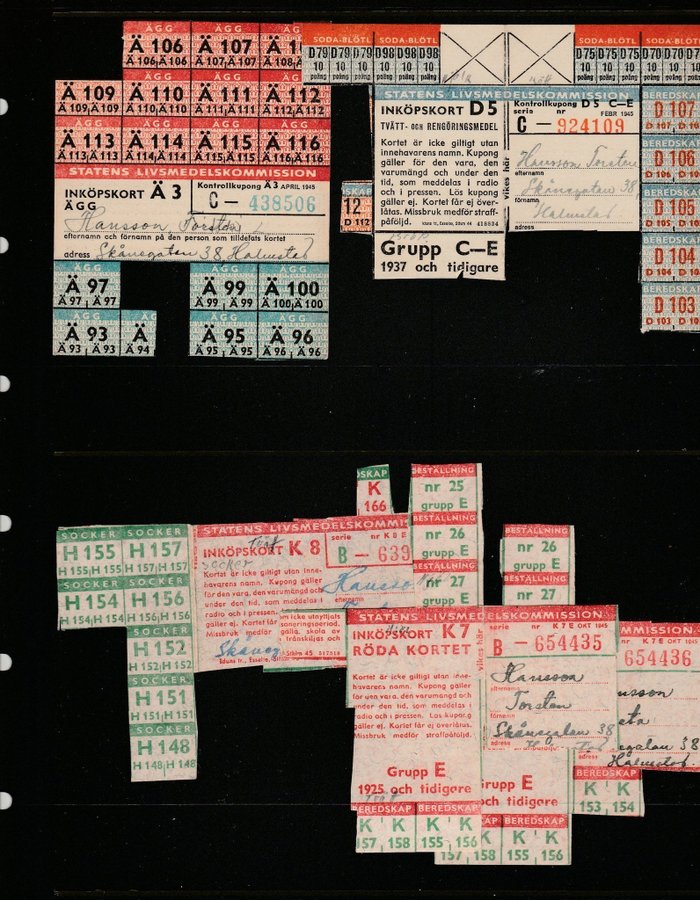 ÄGG ÄGG ÄGG
Ä 106 Ä 107 Ä 1
Ä 106 Ä 106 Ä 107 Ä 107 Ä 108
ÄGG ÄGG ÄGG
Ä 109 Ä 110 Ä 111 Ä 112
Ä 109 Ä 109 Ä 110 Ä 110 Ä 111 Ä 111 Ä 112 Ä 112
ÄGG ÄGG ÄGG ÄGG
Ä 113 Ä 114 Ä 115 Ä 116
Ä 113 Ä 113 Ä 114 Ä 114 Ä 115 Ä 115 Ä 116 Ä 116
STATENS LIVSMEDELSKOMMISSION
INKÖPSKORT Ä 3
ÄGG
Kontrollkupong Ä 3 APRIL 1945
C — 438506
Hansson, Torsten
efternamn och förnamn på den person som tilldelats kortet
adress Skånegatan 38 Halmstad
ÄGG ÄGG ÄGG
Ä 97 Ä 99 Ä 100
Ä 97 Ä 97 Ä 99 Ä 99 Ä 100 Ä 100
ÄGG ÄGG ÄGG
Ä 93 Ä Ä 95 Ä 96
Ä 93 Ä 93 Ä 94 Ä 95 Ä 95 Ä 96 Ä 96
SODA-BLÖTL SODA-BLÖTL SODA-BLÖTL
D79 D79 D79 D98 D98 D98 D75 D75 D70 D70 D70
10 10 10 10 10 10 10 10 10 10 10
poäng poäng poäng poäng poäng poäng poäng poäng poäng poäng
STATENS LIVSMEDELSKOMMISSION
INKÖPSKORT D 5
TVÄTT- OCH RENGÖRINGSMEDEL
Kortet är icke giltigt utan
innehavarens namn. Kupong
gäller för den vara, den
varumängd och under den
tid, som meddelas i radio
och i pressen. Lös kupong
gäller ej. Kortet får ej över-
låtas. Missbruk medför straff-
påföljd.
Grupp C—E
1937 och tidigare
vikes här
Kontrollkupong D 5 C—E
serie nr FEBR 1945
C — 924109
Hansson Torsten
efternamn
Skånegatan 38
förnamn
Halmstad
adress
12
D 112
BEREDSKA
D 107
D 107
BEREDSKA
D 106
D 106
BEREDSKA
D 105
D 105
BEREDSKA
D 104
D 104
BEREDSKA
D 103
D 103
SOCKER SOCKER
H 155 H 157
H 155 H 155 H 157 H 157
SOCKER SOCKER
H 154 H 156
H 154 H 154 H 156 H 156
SOCKER
H 152
H 152 H 152
SOCKER
H 151
H 151 H 151
SOCKER
H 148
H 148 H 148
STATENS LIVSMEDELSKOMMISSI
INKÖPSKORT K 8
socker
Kortet är icke giltigt utan inne-
havarens namn. Kupong gäller
för den vara, den varumängd och
under den tid, som meddelas i
radio och i pressen.
gäller ej. Kort
Missbruk medför
serie nr K 8 E
B — 639
DSKAP
K
166
BESTÄLLNING
nr 25
grupp E
BESTÄLLNING
nr 26
grupp E
BESTÄLLNING
nr 27
BESTÄLLNING
nr 26
grupp E
BESTÄLLNING
nr 27
STATENS LIVSMEDELSKOMMISSION
INKÖPSKORT K7
RÖDA KORTET
Kortet är icke giltigt utan inne-
havarens namn. Kupong gäller
för den vara, den varumängd och
under den tid, som meddelas i
radio och i pressen. Lös kupong
gäller ej. Kortet får ej överlåtas.
Missbruk medför straffpåföljd.
Grupp E
1925 och tidigare
vikes här
serie nr K 7 E OKT 1945
B — 654435
Hansson
efternamn
Torsten
förnamn
Skånegatan 38
adress
LIVSMEDELSKOMMISSION
nr K 7 E OKT 1945
654436
nsson
egatan 38
Halmstad.
rupp E
och tidigare
BEREDSKAP BEREDSKAP
K K K K
157 158 155 156
K K K K
157 158 155 156
BEREDSKAP
K K
153 154